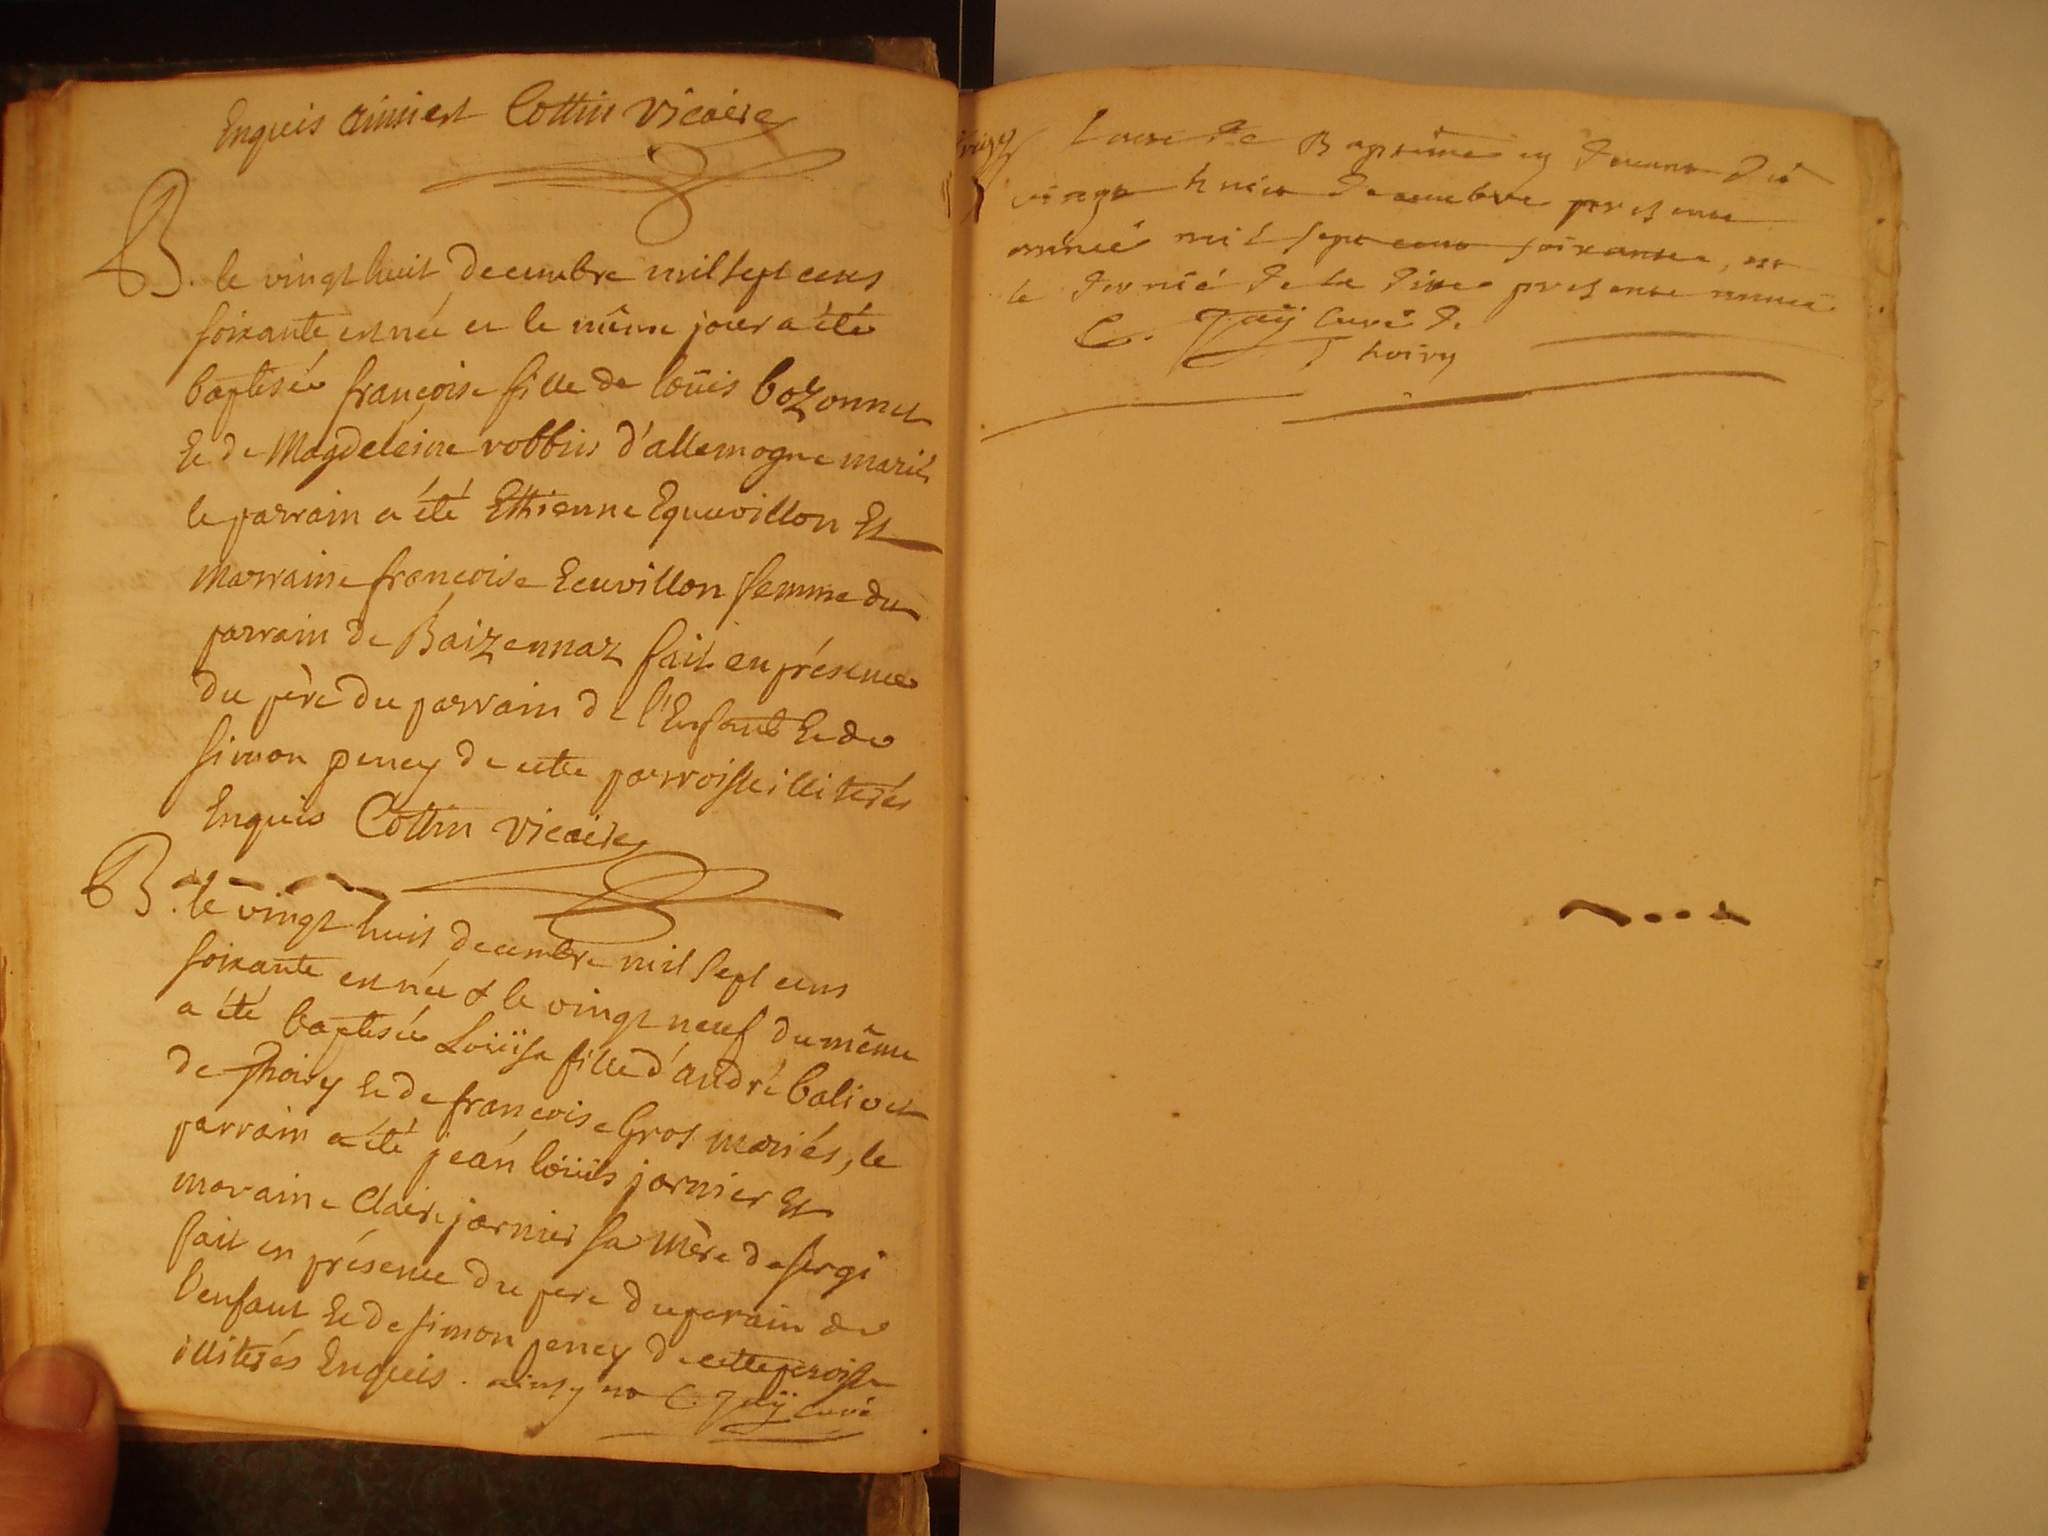 Enquis ainsi est Cottin vicaire
B. le vingt huit decembre mil sept cens
soixante est née et le même jour a été
baptisée françoise fille de loüis bozonnet
Et de Magdeleine robbin d'allemogne mariés
le parrain a été Ethienne Equuvillon Et
Marraine françoise Ecuvillon femme du
parrain de Baizennaz fait en présence
du père du parrain de l'Enfant Et de
simon pency de cette parroisse illiterés
Enquis Cottin vicaire
B. le vingt huit decembre mil sept cens
soixante est née & le vingt neuf du même
a été baptisée Loüise fille d'andré balivet
de Thoiry Et de françoise Gros mariés, le
parrain a été jean loüis jarnier Et
maraine Claire jarnier sa mère de sergi
fait en présence du pere du parain de
l'enfant Et de simon pency de cette paroisse
illiterés Enquis. ainsy est C. Jaÿ curé
L'acte de Baptême cy devant du
vingt huit decembre presente
année mil sept cent soixante, est
le dernié de la ditte presente année
C. Jaÿ curé de
Thoiry